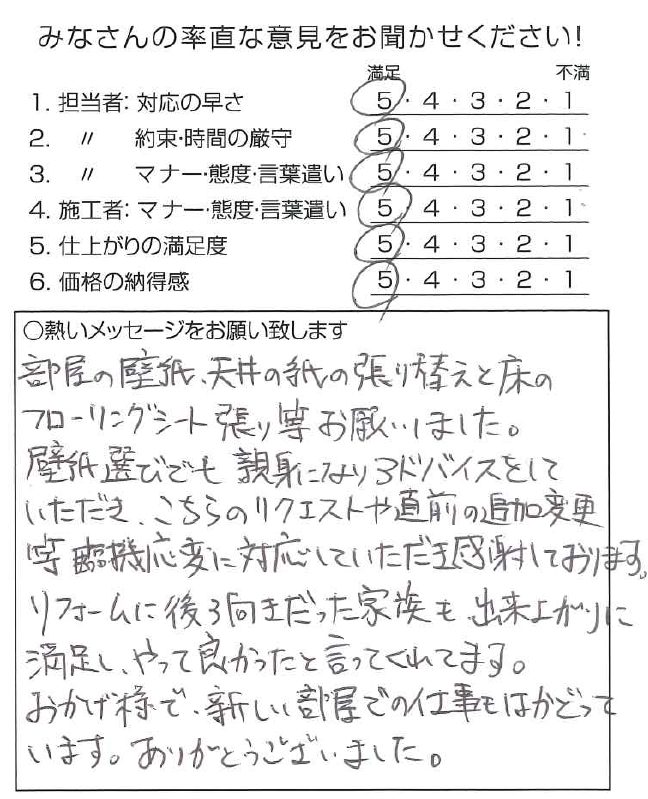 みなさんの率直な意見をお聞かせください!
満足 不満
1. 担当者: 対応の早さ 5・4・3・2・1
2. 〃 約束・時間の厳守 5・4・3・2・1
3. 〃 マナー・態度・言葉遣い 5・4・3・2・1
4. 施工者: マナー・態度・言葉遣い 5・4・3・2・1
5. 仕上がりの満足度 5・4・3・2・1
6. 価格の納得感 5・4・3・2・1
○熱いメッセージをお願い致します
部屋の壁紙、天井の紙の張り替えと床の
フローリングシート張り等お願いしました。
壁紙選びでも親身になりアドバイスをして
いただき、こちらのリクエストや直前の追加変更
等臨機応変に対応していただき感謝しております。
リフォームに後ろ向きだった家族も、出来上がりに
満足し、やって良かったと言ってくれてます。
おかげ様で、新しい部屋での仕事もはかどって
います。ありがとうございました。